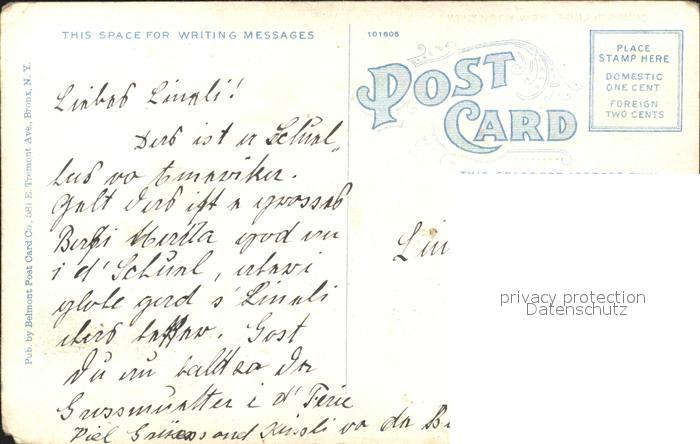 THIS SPACE FOR WRITING MESSAGES
101606
POST CARD
PLACE
STAMP HERE
DOMESTIC
ONE CENT
FOREIGN
TWO CENTS
Pub. by Belmont Post Card Co., 681 E. Tremont Ave., Bronx, N.Y.
Liebes Lineli!
Das ist es Schuel-
hus vo Amerika.
Gelt das ist e grosses
Bethli Meitla god au
i d' Schuel,
glob gord s' Lineli
Gost
Du au bald zo der
Grossmuetter i d' Ferie
Viel Grüess ond Küssli vo der
Lin
privacy protection
Datenschutz